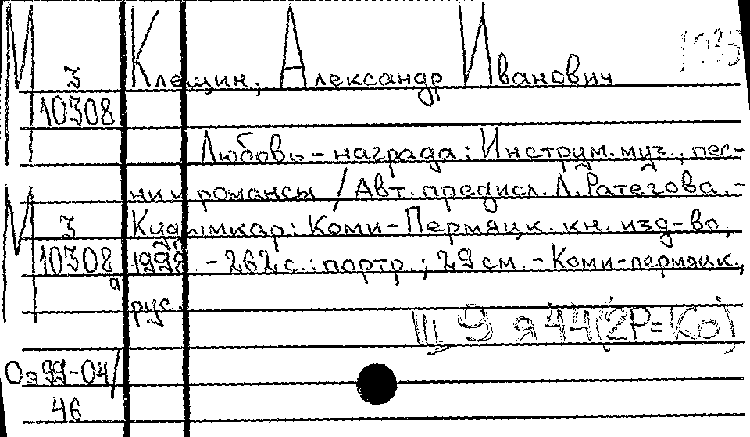 М Клещин, Александр Иванович
З
10308
Любовь-награда: Инструм. муз., пес-
ни и романсы / Авт. предисл. Л. Ратегова. -
М З Кудымкар: Коми-Пермяцк. кн. изд-во,
10308 1998. - 262 с.: портр.; 29 см. - Коми-пермяцк.,
а рус.
Щ 9 я 44(2Р=Ко)
Оэ 99-04/
46